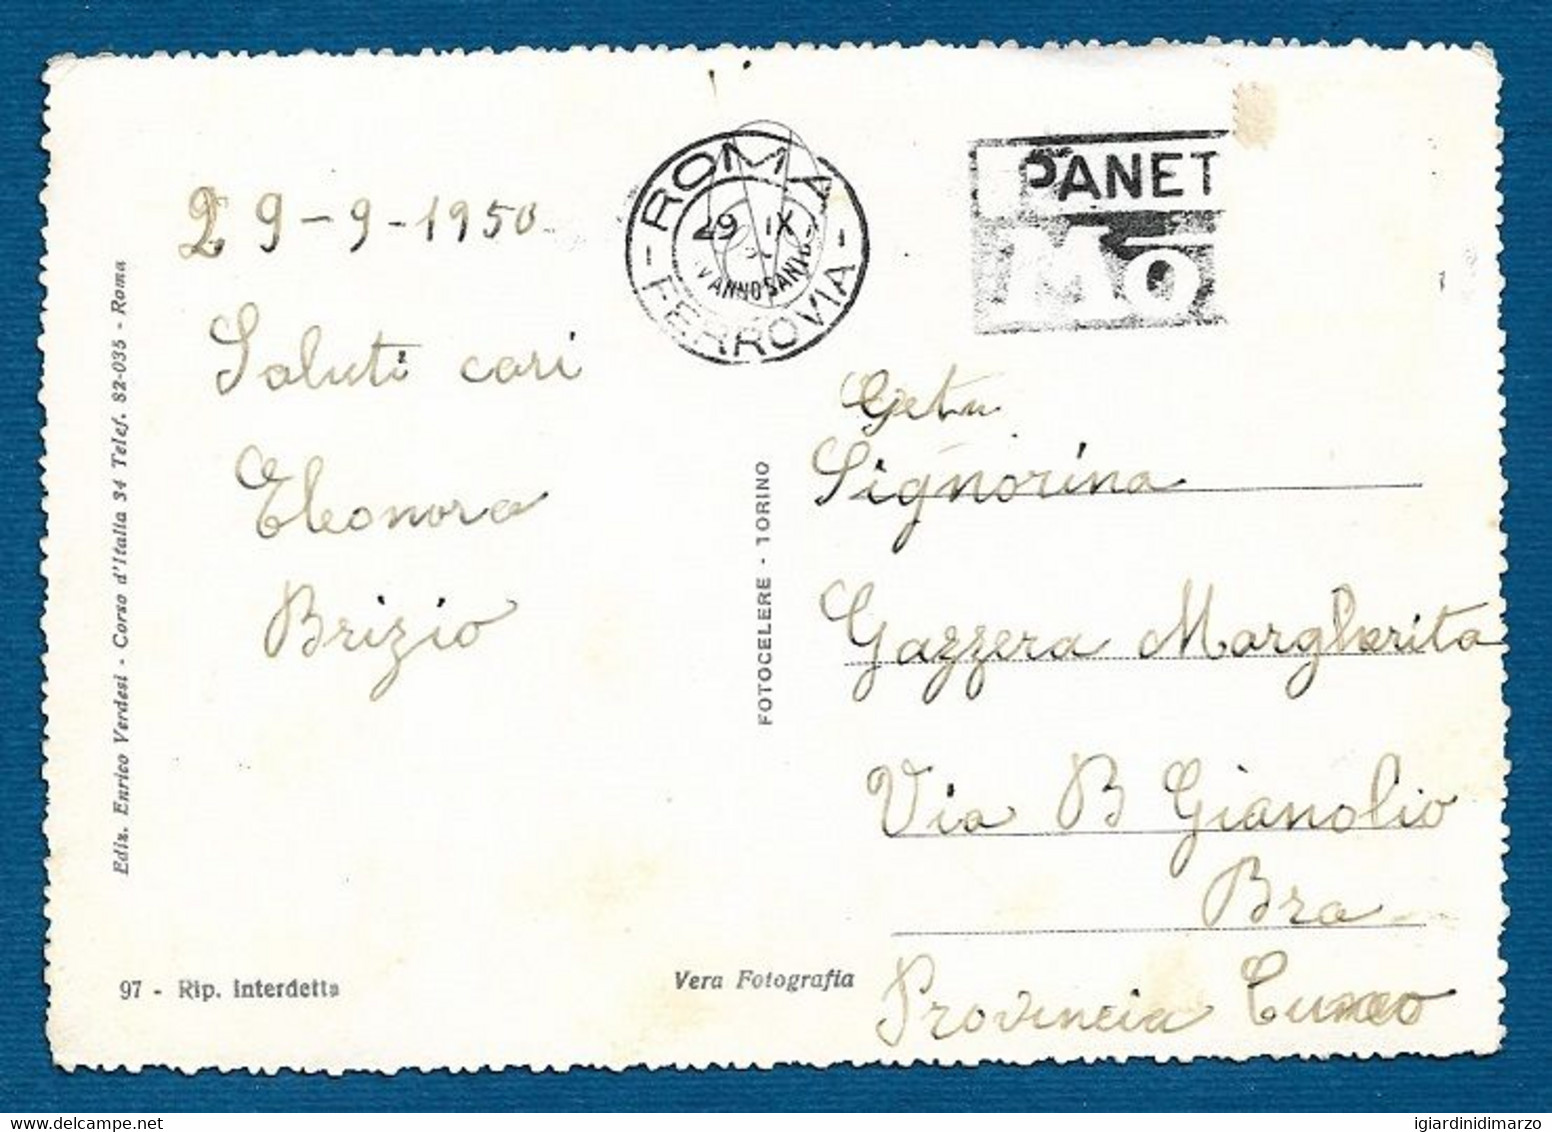 29-9-1950
Saluti cari
Eleonora
Brizio
ROMA
29 IX
ANNO SANTO
- FERROVIA -
PANET
MO
Signorina
Gazzera Margherita
Via B Gianolio
Bra
Provincia Cuneo
FOTOCELERE - TORINO
Ediz. Enrico Verdesi - Corso d'Italia 34 Telef. 82-035 - Roma
97 - Rip. interdetta
Vera Fotografia
igiardinidimarzo